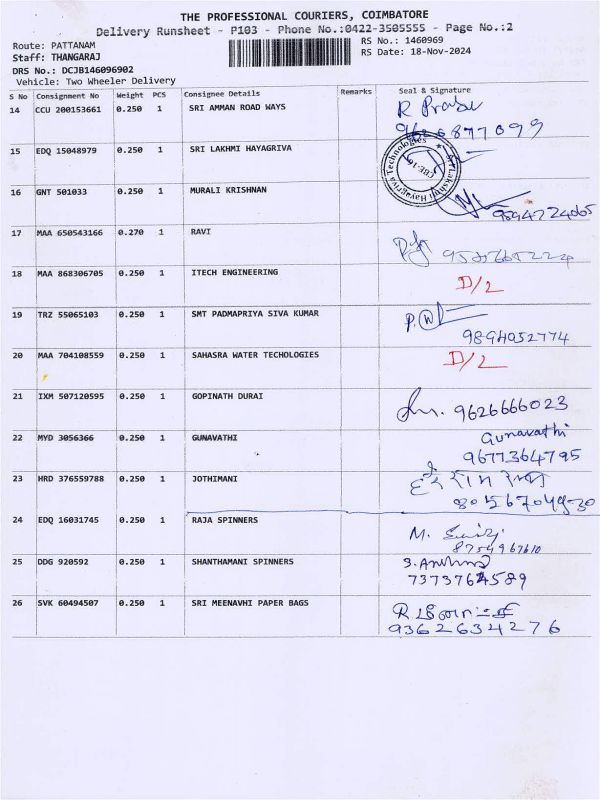 THE PROFESSIONAL COURIERS, COIMBATORE
Delivery Runsheet - P103 - Phone No.:0422-3505555 - Page No.:2
Route: PATTANAM
RS No.: 1460969
Staff: THANGARAJ
RS Date: 18-Nov-2024
DRS No.: DCJB146096902
Vehicle: Two Wheeler Delivery
S No Consignment No Weight PCS Consignee Details Remarks Seal & Signature
14 CCU 200153661 0.250 1 SRI AMMAN ROAD WAYS R Prabu
9626877099
15 EDQ 15048979 0.250 1 SRI LAKHMI HAYAGRIVA Sri Lakshmi Hayagriva Technologies
CBE-16
16 GNT 501033 0.250 1 MURALI KRISHNAN
17 MAA 650543166 0.270 1 RAVI
18 MAA 868306705 0.250 1 ITECH ENGINEERING D/2
19 TRZ 55065103 0.250 1 SMT PADMAPRIYA SIVA KUMAR
9894052774
20 MAA 704108559 0.250 1 SAHASRA WATER TECHOLOGIES D/2
21 IXM 507120595 0.250 1 GOPINATH DURAI 9626666023
22 MYD 3056366 0.250 1 GUNAVATHI Gunavathi
9677364795
23 HRD 376559788 0.250 1 JOTHIMANI
24 EDQ 16031745 0.250 1 RAJA SPINNERS M.
25 DDG 920592 0.250 1 SHANTHAMANI SPINNERS
7373764589
26 SVK 60494507 0.250 1 SRI MEENAVHI PAPER BAGS
9362634276